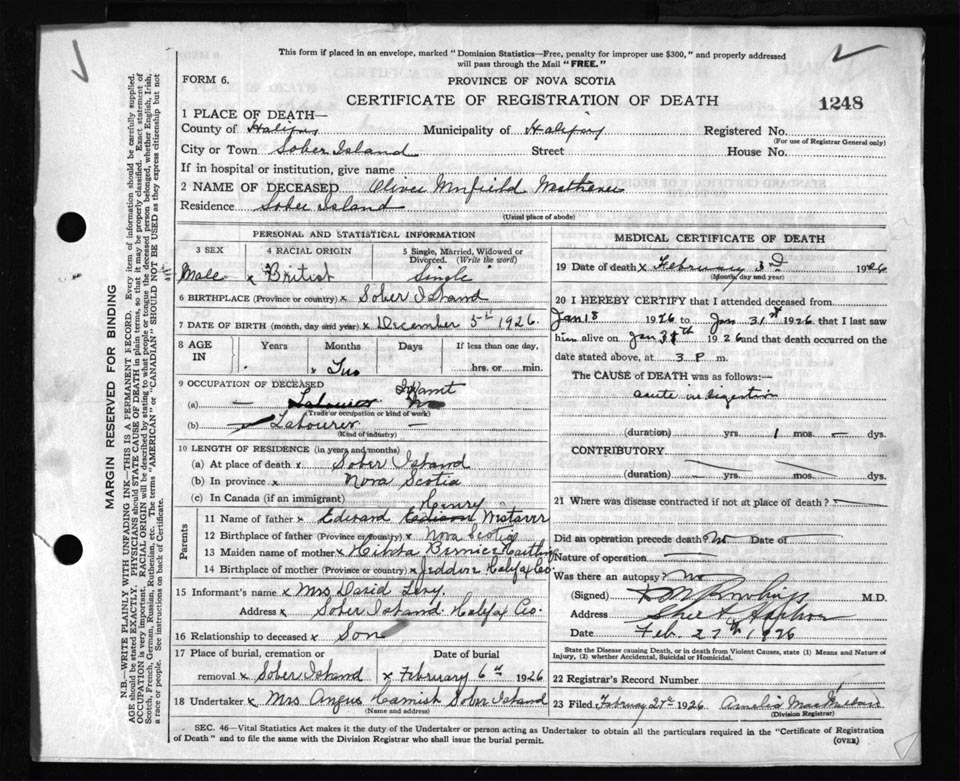 This form if placed in an envelope, marked "Dominion Statistics—Free, penalty for improper use $300," and properly addressed
will pass through the Mail "FREE."
FORM 6.
PROVINCE OF NOVA SCOTIA
CERTIFICATE OF REGISTRATION OF DEATH
1248
1 PLACE OF DEATH—
County of Halifax Municipality of Halifax Registered No.
(For use of Registrar General only)
City or Town Sober Island Street House No.
If in hospital or institution, give name
2 NAME OF DECEASED Oliver
Residence Sober Island
(Usual place of abode)
PERSONAL AND STATISTICAL INFORMATION
3 SEX 4 RACIAL ORIGIN 5 Single, Married, Widowed or
Divorced. (Write the word)
Male x British Single
6 BIRTHPLACE (Province or country) x Sober Island
7 DATE OF BIRTH (month, day and year) x December 5th 1926.
8 AGE IN Years Months Days If less than one day,
x Two hrs. or min.
9 OCCUPATION OF DECEASED Infant
(a) — Labourer
(Trade or occupation or kind of work)
(b) Labourer —
(Kind of industry)
10 LENGTH OF RESIDENCE (in years and months)
(a) At place of death x Sober Island
(b) In province x Nova Scotia
(c) In Canada (if an immigrant)
Parents
Henry
11 Name of father x Edward Edison
12 Birthplace of father (Province or country) x Nova Scotia
13 Maiden name of mother x Bernice
14 Birthplace of mother (Province or country) x Jeddore Halifax Co.
15 Informant's name x Mrs David Levy.
Address x Sober Island Halifax Co.
16 Relationship to deceased x Son
17 Place of burial, cremation or Date of burial
removal x Sober Island x February 6th 1926
18 Undertaker x Mrs Angus Sober Island
(Name and address)
MEDICAL CERTIFICATE OF DEATH
19 Date of death x February 3rd 1926
(Month, day and year)
20 I HEREBY CERTIFY that I attended deceased from
Jan 18 1926 to Jan 31st 1926 that I last saw
him alive on Jan 31th 1926 and that death occurred on
date stated above, at 3 P m.
The CAUSE of DEATH was as follows:—
acute indigestion
(duration) yrs. 1 mos. — dys.
CONTRIBUTORY
(duration) yrs. mos. dys.
21 Where was disease contracted if not at place of death?
Did an operation precede death? No Date of
Nature of operation
Was there an autopsy? No
(Signed) M.D.
Address
Date Feb. 27th 1926
State the Disease causing Death, or in death from Violent Causes, state (1) Means and Nature of
Injury, (2) whether Accidental, Suicidal or Homicidal.
22 Registrar's Record Number
23 Filed February 27th 1926. Amelia
(Division Registrar)
SEC. 46—Vital Statistics Act makes it the duty of the Undertaker or person acting as Undertaker to obtain all the particulars required in the "Certificate of Registration
of Death" and to file the same with the Division Registrar who shall issue the burial permit. (OVER)
MARGIN RESERVED FOR BINDING
N.B.—WRITE PLAINLY WITH UNFADING INK—THIS IS A PERMANENT RECORD. Every item of information should be carefully supplied.
AGE should be stated EXACTLY. PHYSICIANS should STATE CAUSE OF DEATH in plain terms, so that it may be properly classified. Exact statement of
OCCUPATION is very important. RACIAL ORIGIN will be described by stating to what people or tongue the deceased person belonged, whether English, Irish,
Scotch, French, German, Russian, Ruthenian, etc. The terms "AMERICAN" or "CANADIAN" SHOULD NOT BE USED as they express citizenship but not
a race or people. See instructions on back of Certificate.